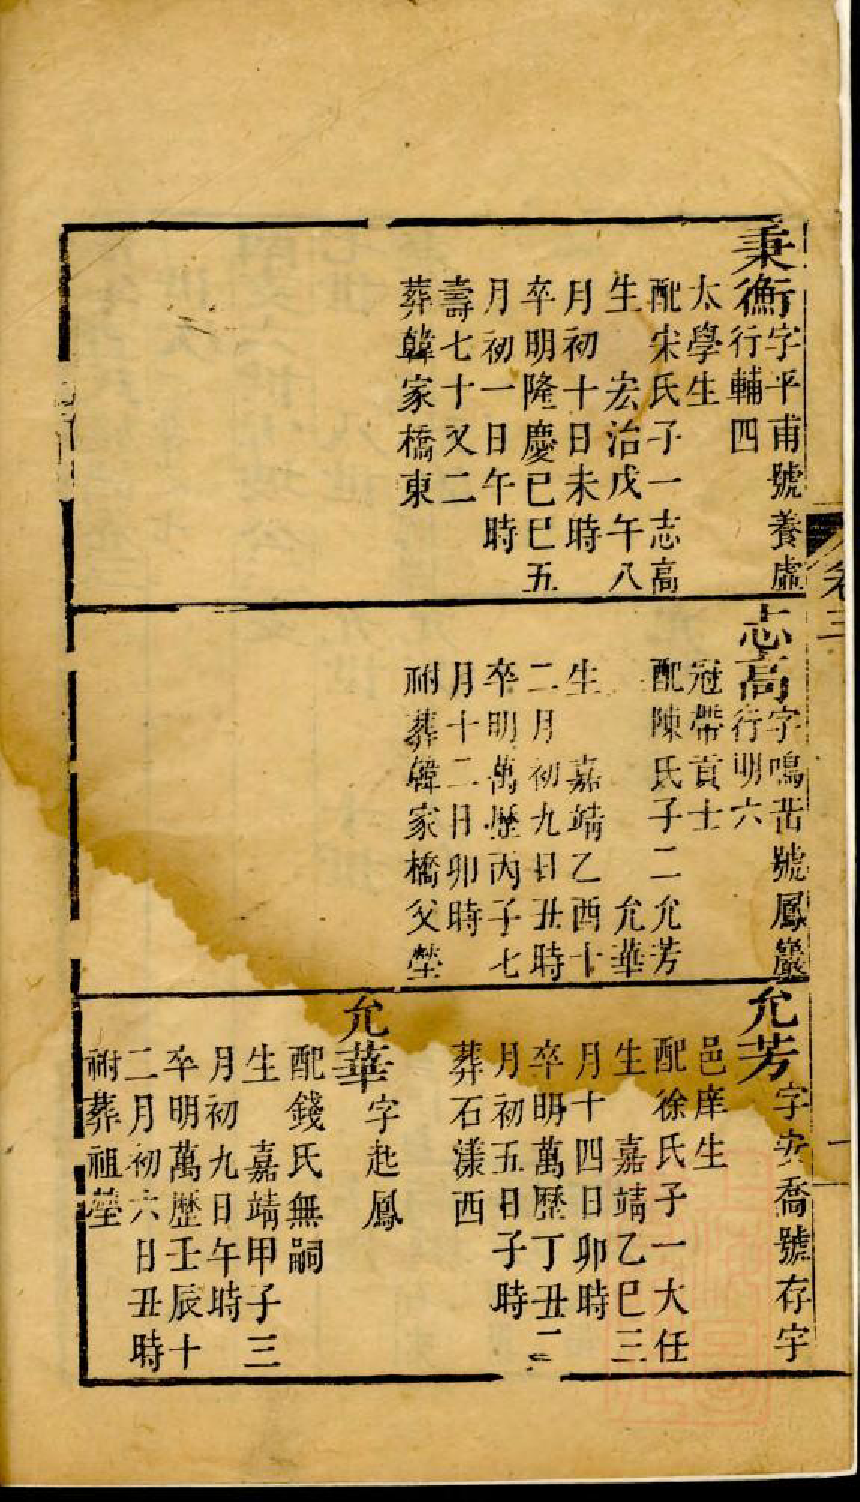 秉衡
字平甫號養虛
行輔四
太學生
配宋氏子一志高
生 宏治戊午八
月初十日未時
卒明隆慶己巳五
月初一日午時
壽七十又二
葬韓家橋東
志高
字鳴岊號鳳巖
行明六
冠帶貢士
配陳氏子二允芳
允華
生 嘉靖乙酉十
二月初九日丑時
卒明萬歷丙子七
月十二日卯時
祔葬韓家橋父塋
允芳
字安喬號存宇
邑庠生
配徐氏子一大任
生 嘉靖乙巳三
月十四日卯時
卒明萬歷丁丑二
月初五日子時
葬石漾西
允華
字起鳳
配錢氏無嗣
生 嘉靖甲子三
月初九日午時
卒明萬歷壬辰十
二月初六日丑時
祔葬祖塋
卷三